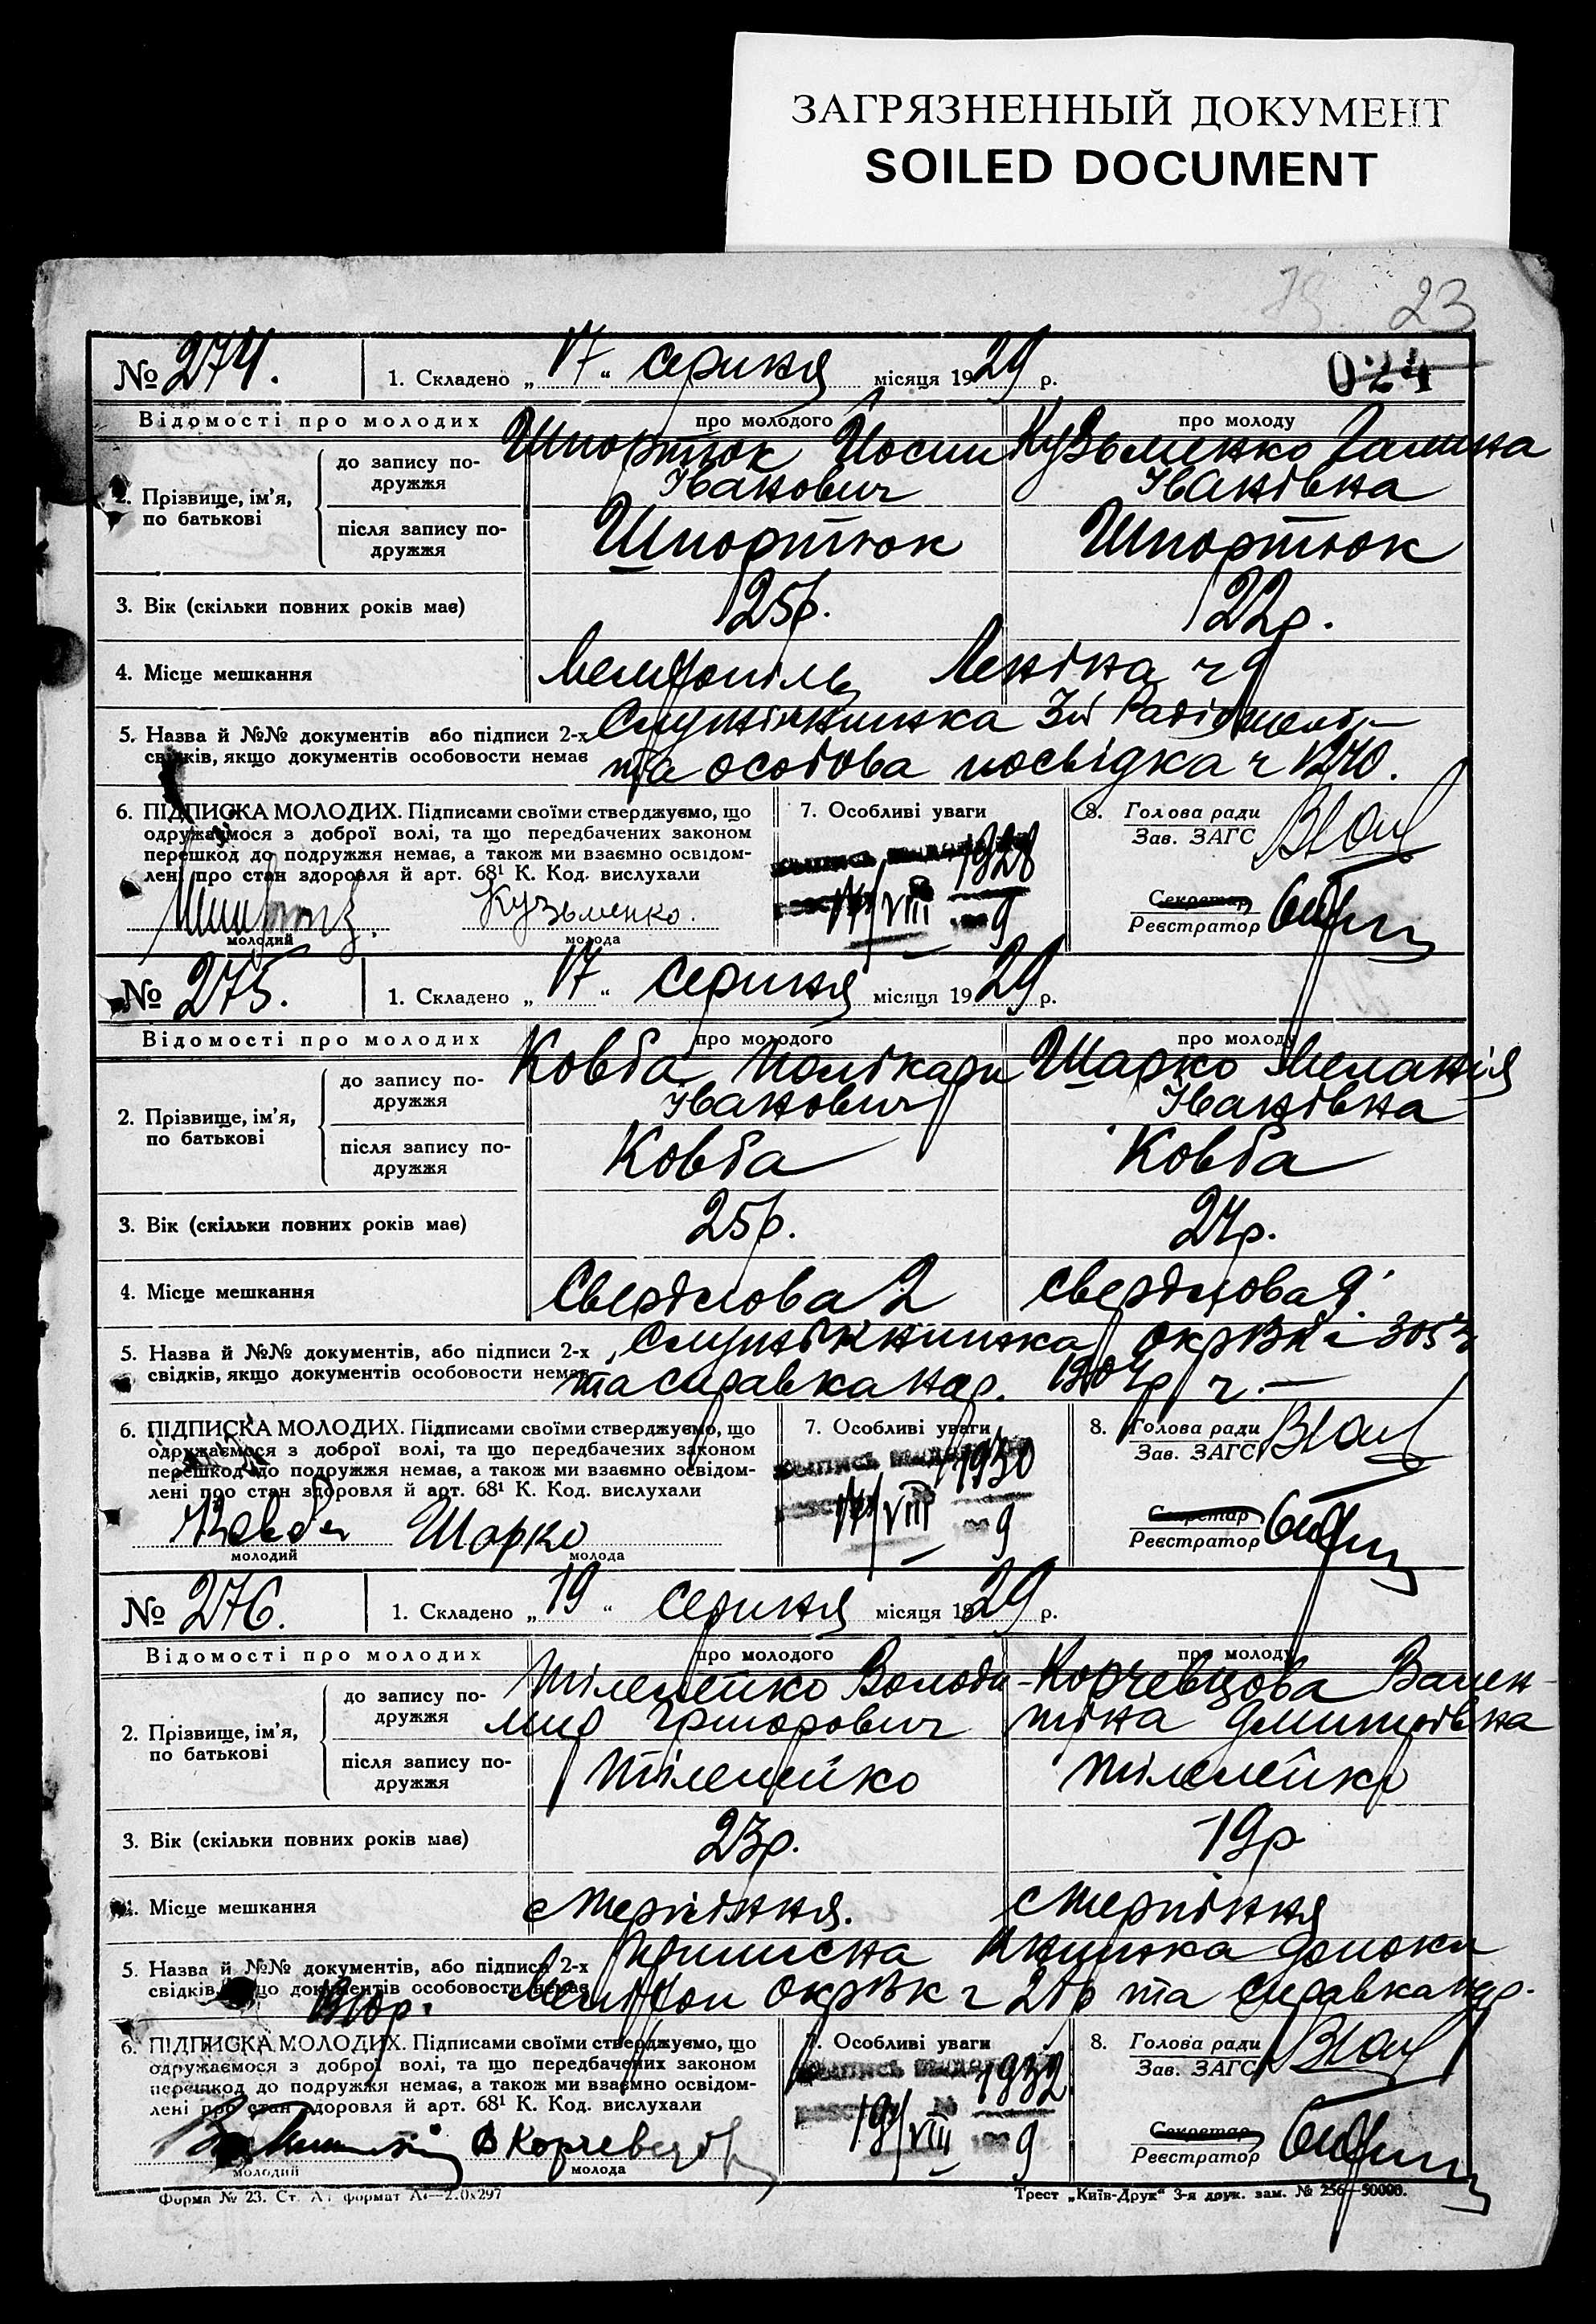 ЗАГРЯЗНЕННЫЙ ДОКУМЕНТ
SOILED DOCUMENT
23
024
№ 274. 1. Складено „17“ серпня місяця 1929 р.
Відомості про молодих про молодого про молоду
2. Прізвище, ім’я, по батькові
до запису подружжя
Шпортюк Йосип Кузьменко Галина
Іванович Іванівна
після запису подружжя
Шпортюк Шпортюк
3. Вік (скільки повних років має) 25р. 22р.
4. Місце мешкання Мелітопіль Леніна ч 9
5. Назва й №№ документів або підписи 2-х
свідків, якщо документів особовости немає
та особова посвідка ч 1270.
6. ПІДПИСКА МОЛОДИХ. Підписами своїми стверджуємо, що
одружаємося з доброї волі, та що передбачених законом
перешкод до подружжя немає, а також ми взаємно освідом-
лені про стан здоровля й арт. 68¹ К. Код. вислухали
Кузьменко.
молодий молода
7. Особливі уваги
1928
17/VIII 9
8. Голова ради
Зав. ЗАГС
Секретар
Реєстратор
№ 275. 1. Складено „17“ серпня місяця 1929 р.
Відомості про молодих про молодого про молоду
2. Прізвище, ім’я, по батькові
до запису подружжя
Ковба Полікарп Шарко Меланія
Іванович Іванівна
після запису подружжя
Ковба Ковба
3. Вік (скільки повних років має) 25р. 24р.
4. Місце мешкання Свердлова 2 Свердлова 9
5. Назва й №№ документів, або підписи 2-х
свідків, якщо документів особовости немає
та справка нар. 1904р ч. —
6. ПІДПИСКА МОЛОДИХ. Підписами своїми стверджуємо, що
одружаємося з доброї волі, та що передбачених законом
перешкод до подружжя немає, а також ми взаємно освідом-
лені про стан здоровля й арт. 68¹ К. Код. вислухали
Ковба Шарко
молодий молода
7. Особливі уваги
1930
17/VIII 9
8. Голова ради
Зав. ЗАГС
Секретар
Реєстратор
№ 276. 1. Складено „19“ серпня місяця 1929 р.
Відомості про молодих про молодого про молоду
2. Прізвище, ім’я, по батькові
до запису подружжя
Тілелейко Володи- Корчевцова Вален-
мир Григорович тіна Дмитрівна
після запису подружжя
Тілелейко Тілелейко
3. Вік (скільки повних років має) 23р. 19р
4. Місце мешкання с Терпіння. с Терпіння
5. Назва й №№ документів, або підписи 2-х
свідків, якщо документів особовости немає
Приписна книжка
та справка нар.
1910р.
6. ПІДПИСКА МОЛОДИХ. Підписами своїми стверджуємо, що
одружаємося з доброї волі, та що передбачених законом
перешкод до подружжя немає, а також ми взаємно освідом-
лені про стан здоровля й арт. 68¹ К. Код. вислухали
В Корчевцова
молодий молода
7. Особливі уваги
1932
19/VIII 9
8. Голова ради
Зав. ЗАГС
Секретар
Реєстратор
Форма № 23. Ст. А4 формат А4—210x297
Трест „Київ-Друк“ 3-я друк. зам. № 256—50000.